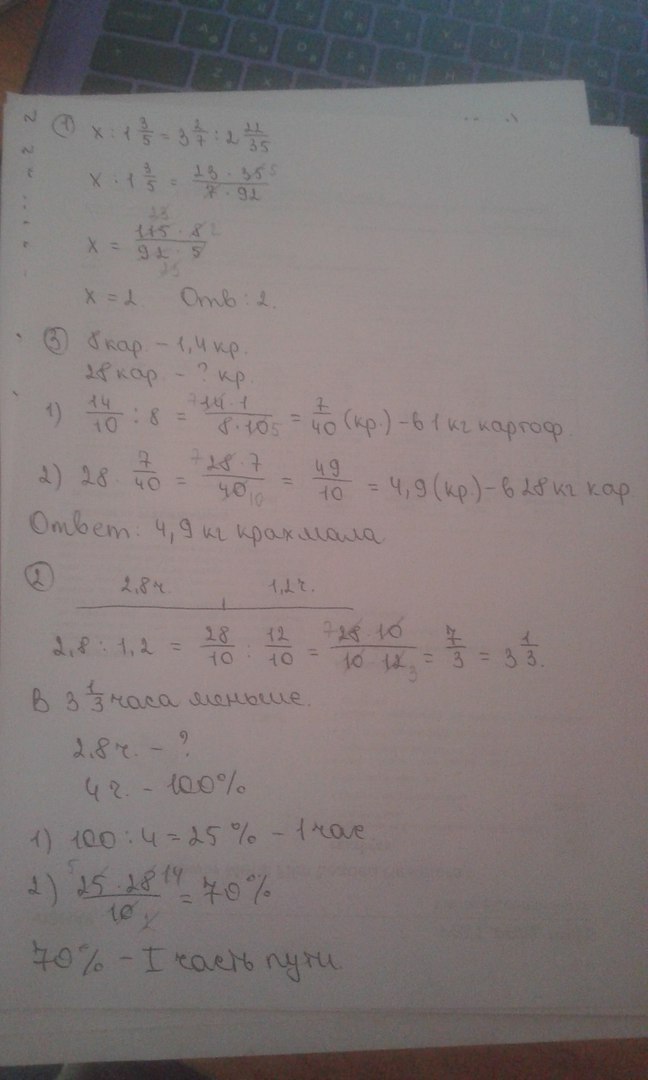 ① x : 1 3/5 = 3 2/7 : 2 22/35
x · 1 3/5 = 23 · 35 5 / 7 · 92
x = 23 115 · 8 2 / 92 · 5 23
x = 2 Отв : 2.
③ 8 кар. – 1,4 кр.
28 кар. – ? кр.
1) 14/10 : 8 = 7 14 · 1 / 8 · 10 5 = 7/40 (кр.) – в 1 кг картоф.
2) 28 · 7/40 = 7 28 · 7 / 40 10 = 49/10 = 4,9 (кр.) – в 28 кг кар
Ответ: 4,9 кг крахмала
②
2,8 ч. 1,2 ч.
2,8 : 1,2 = 28/10 : 12/10 = 7 28 · 10 / 10 · 12 3 = 7/3 = 3 1/3.
В 3 1/3 часа меньше.
2,8 ч. – ?
4 ч. – 100%
1) 100 : 4 = 25 % – 1 час.
2) 5 25 · 28 14 / 10 2 = 70%
70% – I часть пути.